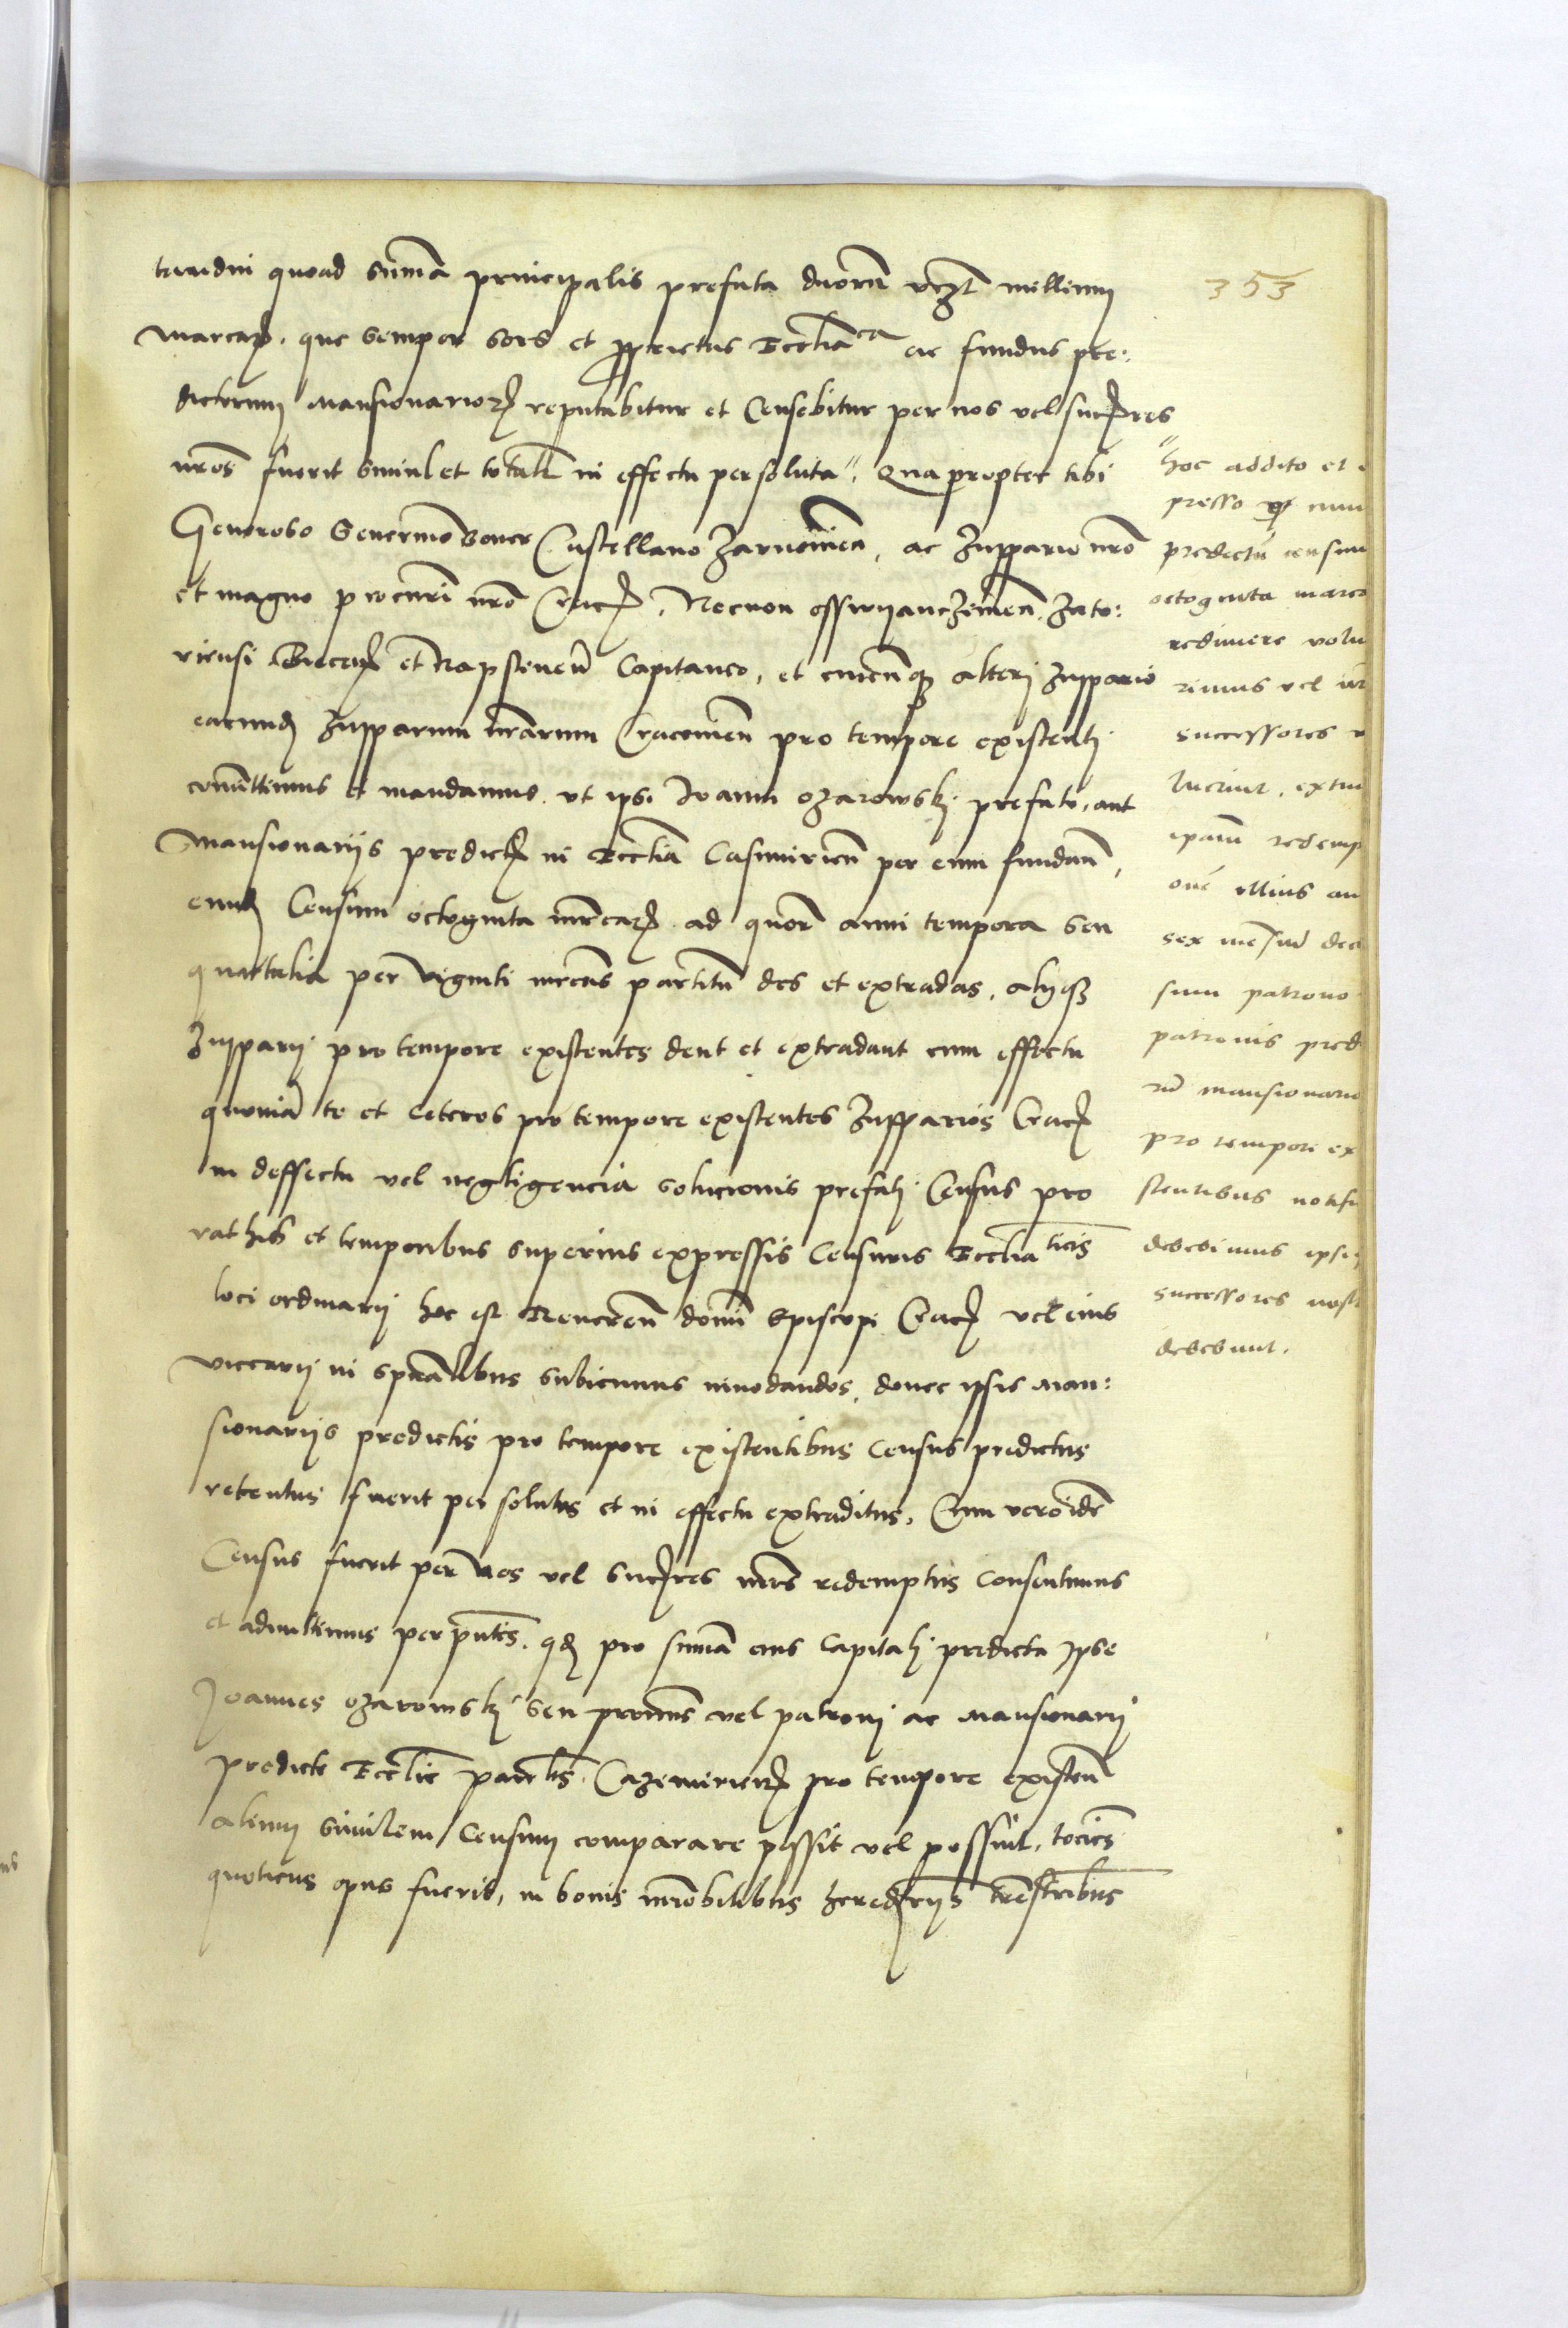 353
tuendini quoad summa principalis prefata duorum vczt millenum
marcarum. que semper sors et proprietas Ecclesiastica ac fundus pre:
dictorum Mansionariorum reputabitur et Censebitur per nos vel succres
nros fuerit simul et totalr in effectu persoluta". Quapropter tibi
Generoso Severino Boner Castellano Zarnowien, ac Zuppario nro
et magno procuri nro Crac. Necnon osswyanczimen. Zato:
riensi Biecen et Rapstenen Capitaneo, et cuicunque alteri Zuppario
earund Zupparum nrarum Cracovien pro tempore existenti
committimus et mandamus. ut ipsi Ioanni ozarowski prefato, aut
Mansionariis predictis in Ecclia Casimirien per eum fundatis,
eund Censum octoginta mrcarum ad quatuor anni tempora seu
quartalia per viginti mrcas partitum des et extradas, aliique
Zupparij pro tempore existentes dent et extradant cum effectu
quoniam te et ceteros pro tempore existentes Zupparios Crac
in deffectu vel negligencia solucionis prefati Census pro
rathis et temporibus superius expressis Censuris Ecclia ticis
loci ordinarij hoc est Reveren domini Episcopi Crac vel eius
viccarij in spualibus subicimus innodandos, donec ipsis Man:
sionarijs predictis pro tempore existentibus Census predictus
retentus fuerit per solutus et in effectu extraditus. Cum vero idem
Census fuerit per nos vel succres nros redemptus Consentimus
et admittimus per pntes. quod pro summa eius Capitali predicta ipse
Joannes ozarowski seu proximus vel patroni ac Mansionarij
predicte Ecclie parrlis Cazimirien pro tempore existen
alium similem Censum comparare possit vel possint, tocies
quoticus opus fuerit, in bonis immobilibus heredrijs trestribus
"hoc addito et
presso quod cum
predictum censum
octoginta marca
redimere volu
rimus vel nri
successores v
luerint, extun
ipam redemp
one illius an
sex menses decur
sum patrono
patronis pred
rum mansionario
pro tempore ex
stentibus notifi
debebimus ipsi
successores nost
debebunt.